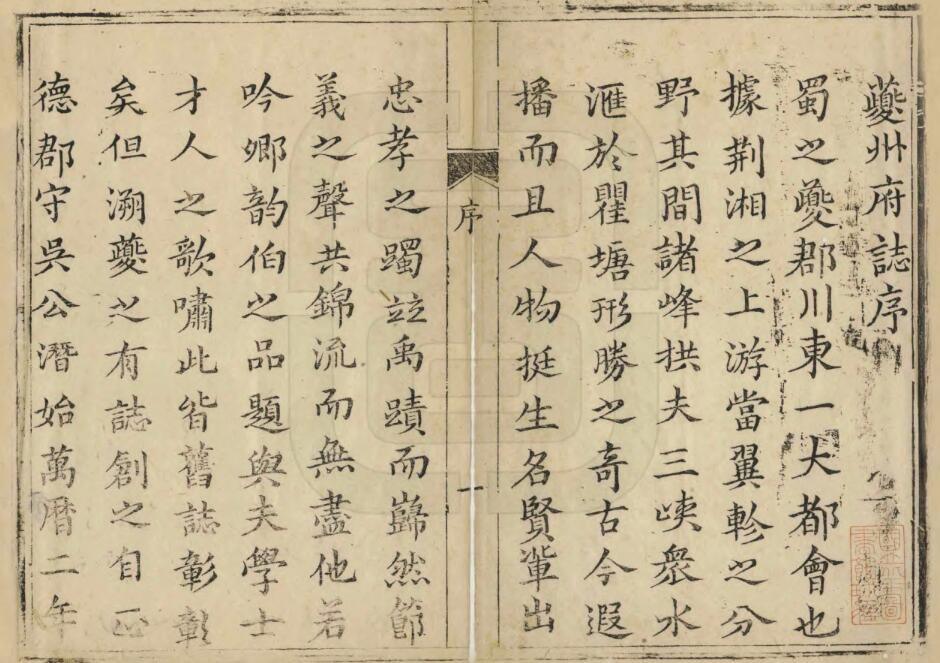 夔州府誌序
蜀之夔郡川東一大都會也
據荆湘之上游當翼軫之分
野其間諸峰拱夫三峽衆水
滙於瞿塘形勝之竒古今遐
播而且人物挺生名賢軰出
序
一
忠孝之躅竝禹蹟而巋然節
義之聲共錦流而無盡他若
吟鄉韵伯之品題與夫學士
才人之歌嘯此皆舊誌彰彰
矣但溯夔之有誌創之自正
德郡守吳公潛始萬曆二年